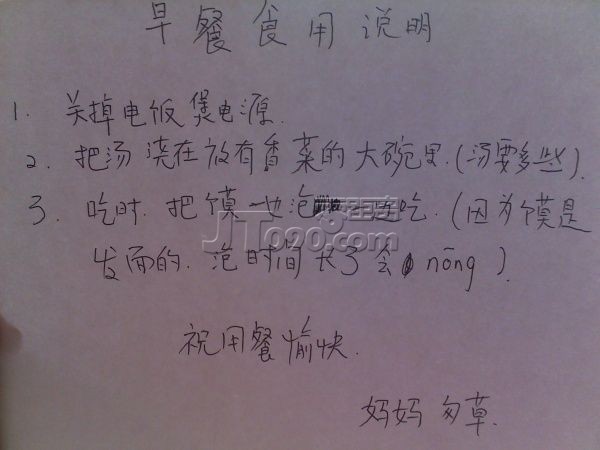 早餐食用说明
1. 关掉电饭煲电源.
2. 把汤浇在放有香菜的大碗里.(汤要多些).
3. 吃时.把馍一边泡一边吃.(因为馍是
发面的.泡时间长了会 nōng).
祝用餐愉快.
妈妈 匆草.
JT090.com